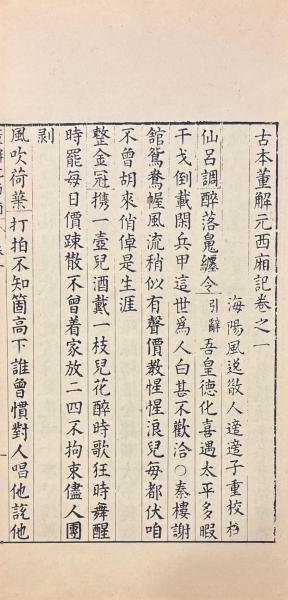 古本董解元西廂記卷之一
海陽風逆散人適適子重校梓
仙呂調醉落魄纏令 引辭 吾皇德化喜遇太平多暇
干戈倒載閑兵甲這世爲人白甚不歡洽○秦樓謝
館鴛鴦幄風流稍似有聲價教惺惺浪兒每都伏咱
不曾胡來俏倬是生涯
整金冠携一壺兒酒戴一枝兒花醉時歌狂時舞醒
時罷每日價踈散不曾着家放二四不拘束儘人團
剥
風吹荷葉 打拍不知箇高下誰曾慣對人唱他說他